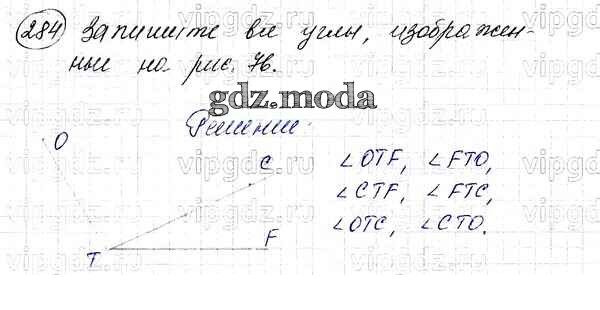 284 Запишите все углы, изображен-
ные на рис. 76.
gdz.moda
Решение.
O
C
∠OTF, ∠FTO,
∠CTF, ∠FTC,
∠OTC, ∠CTO.
F
T
vipgdz.ru